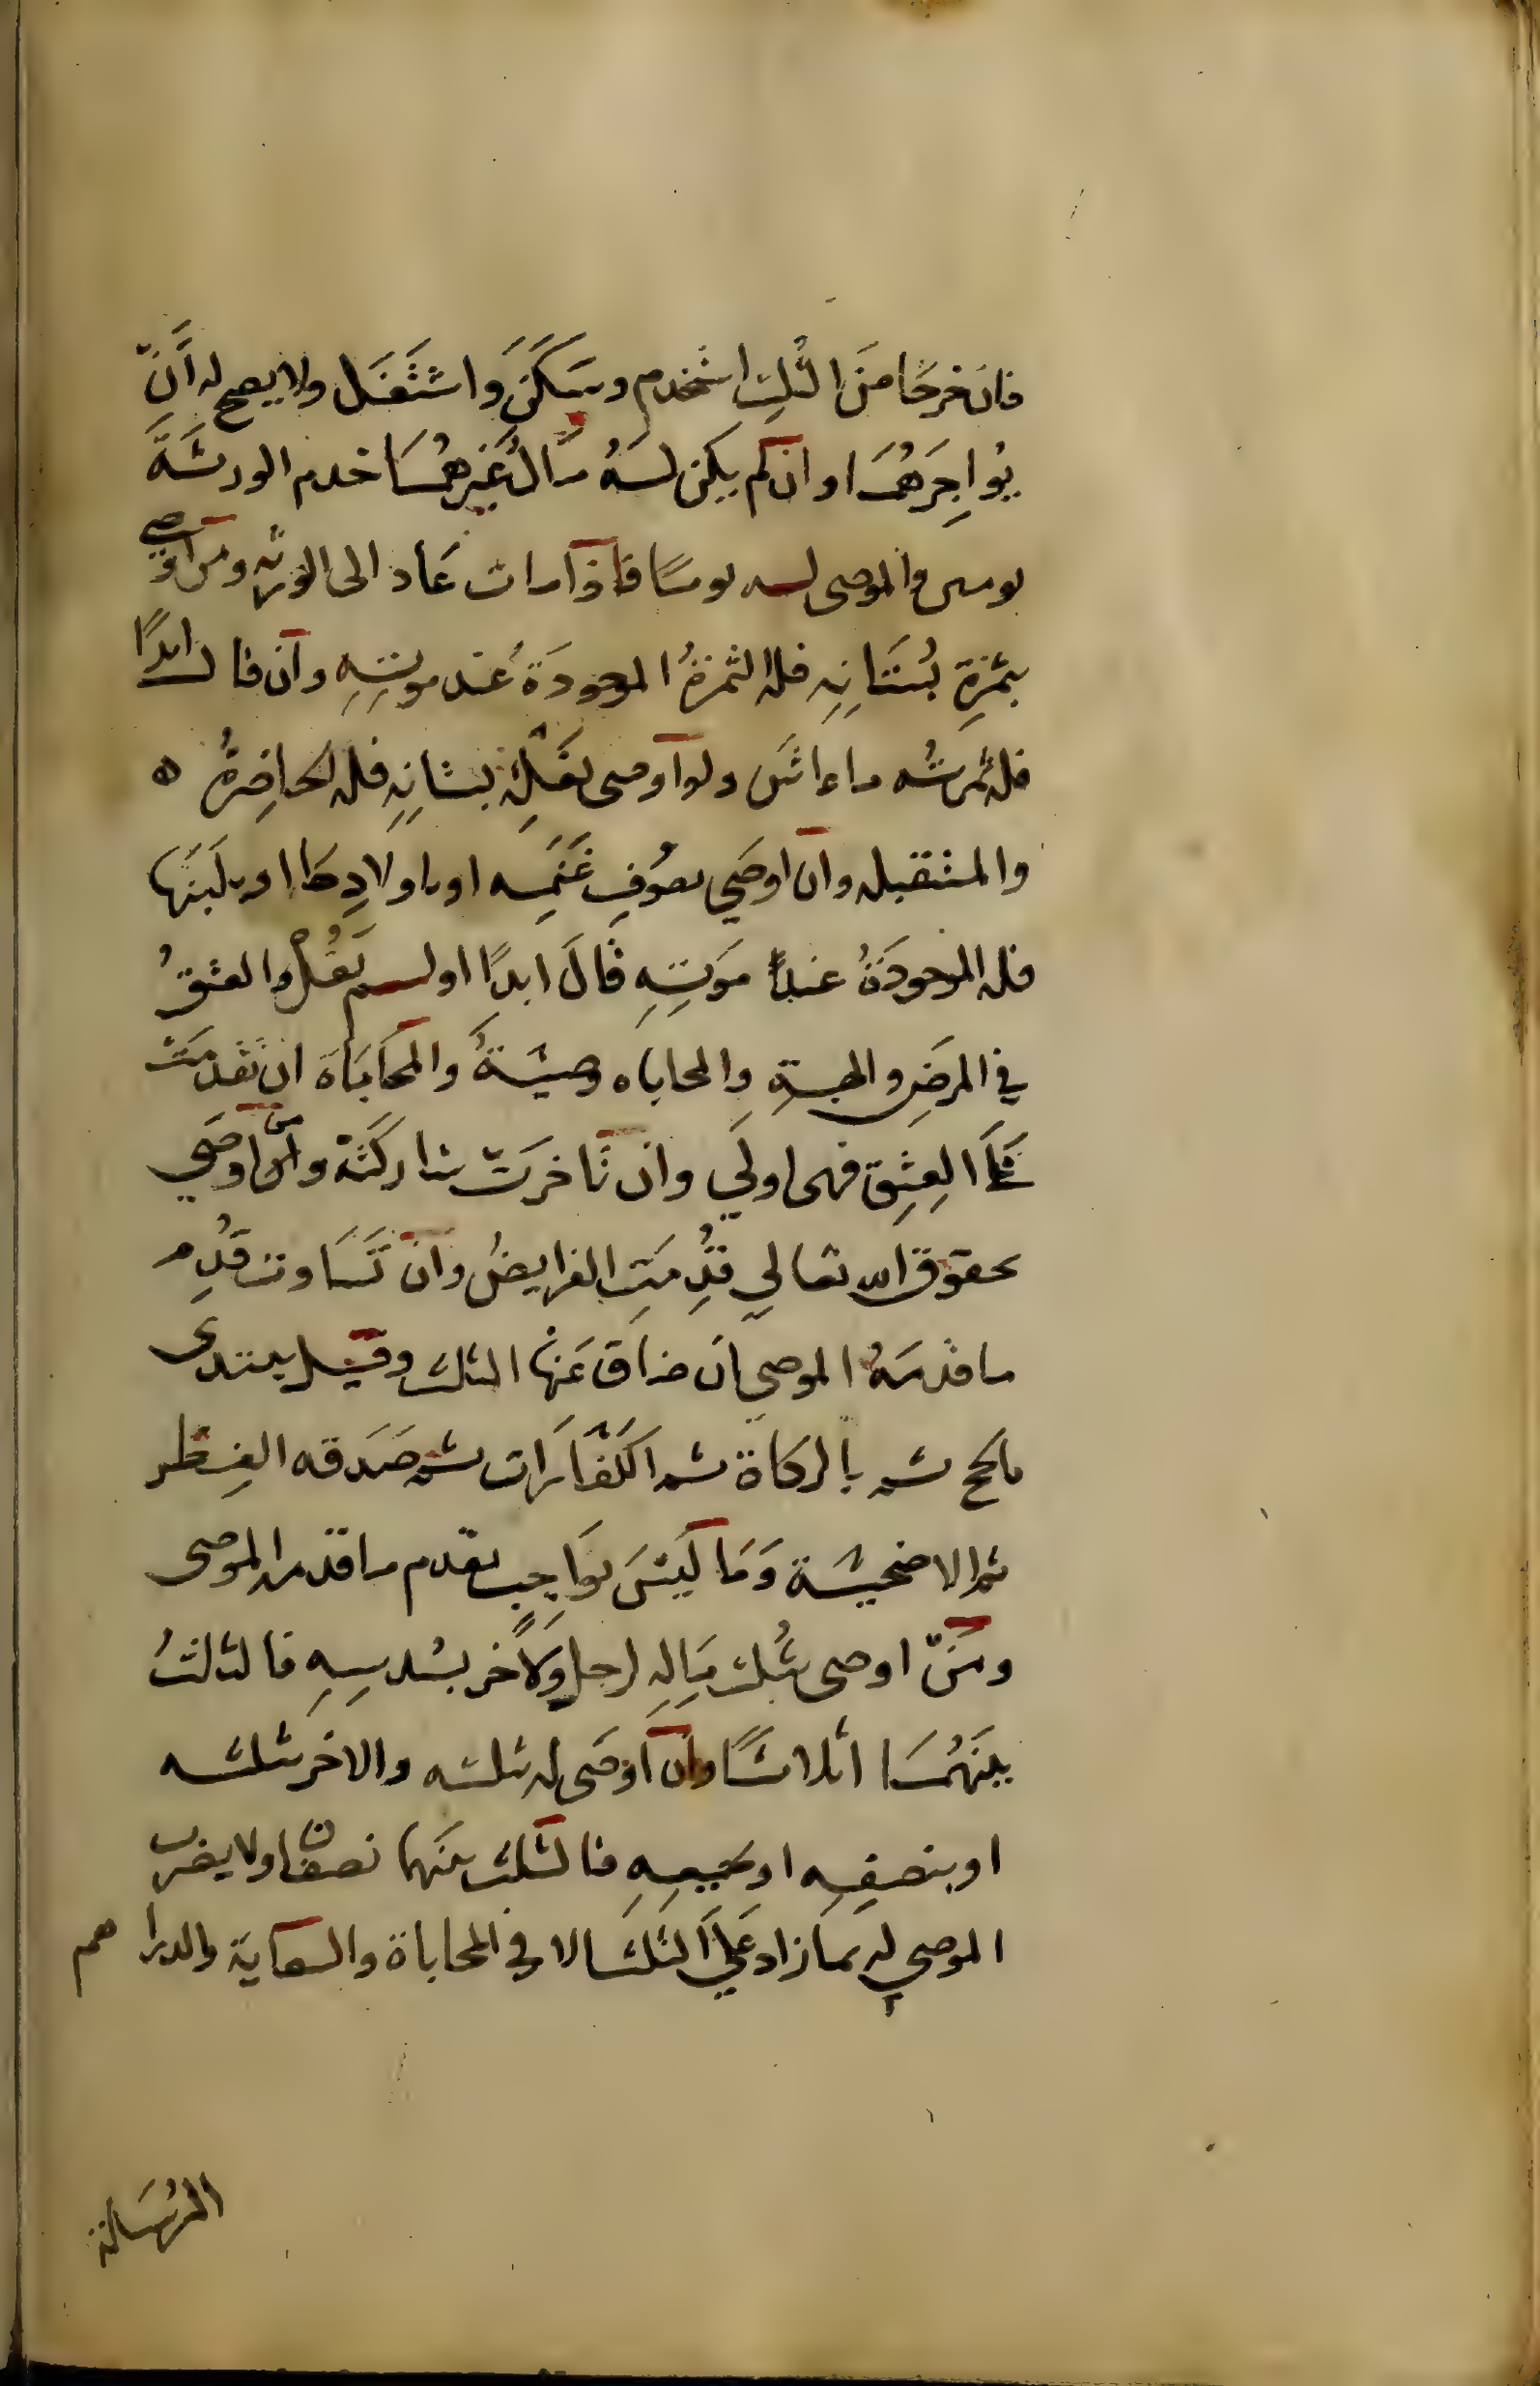 فان خرجا من الثلث استخدم وسكن واستغل ولا يصح له ان
يواجرهما وان لم يكن له مال غيرهما خدم الورثة
يومين والموصى له يوما فاذا مات عاد الى الورثة ومن اوصى
بثمرة بستانه فله الثمرة الموجودة عند موته وان قال ابدا
فله ثمرته ما عاش ولو اوصى بغلة بستانه فله الحاضرة
والمستقبله وان اوصى بصوف غنمه او باولادها او بلبنها
فله الموجودة عند موته قال ابدا او لم يقل والعتق
في المرض والهبة والمحاباه وصية والمحاباة ان تقدمت
على العتق فهى اولى وان تاخرت شاركته ومن اوصى
بحقوق الله تعالى قدمت الفرايض وان تساوت قدم
ما قدمه الموصي ان ضاق عنها الثلث وقيل يبتدى
بالحج ثم بالزكاة ثم الكفارات ثم صدقه الفطر
ثم الاضحية وما ليس بواجب يقدم ما قدمه الموصى
ومن اوصى بثلث ماله لرجل ولاخر بسدسه فالثلث
بينهما اثلاثا وان اوصى له بثلثه والاخر بثلثه
او بنصفه او بجميعه فالثلث بينهما نصفان ولا يضرب
الموصى له بما زاد على الثلث الا في المحاباة والسعاية والدراهم
المرسلة